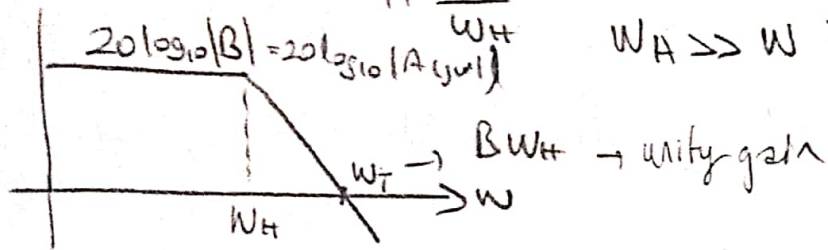 W_H
20log₁₀|B| = 20log₁₀|A(jw)| W_H >> W
W_T → BW_H → unity gain
W
W_H